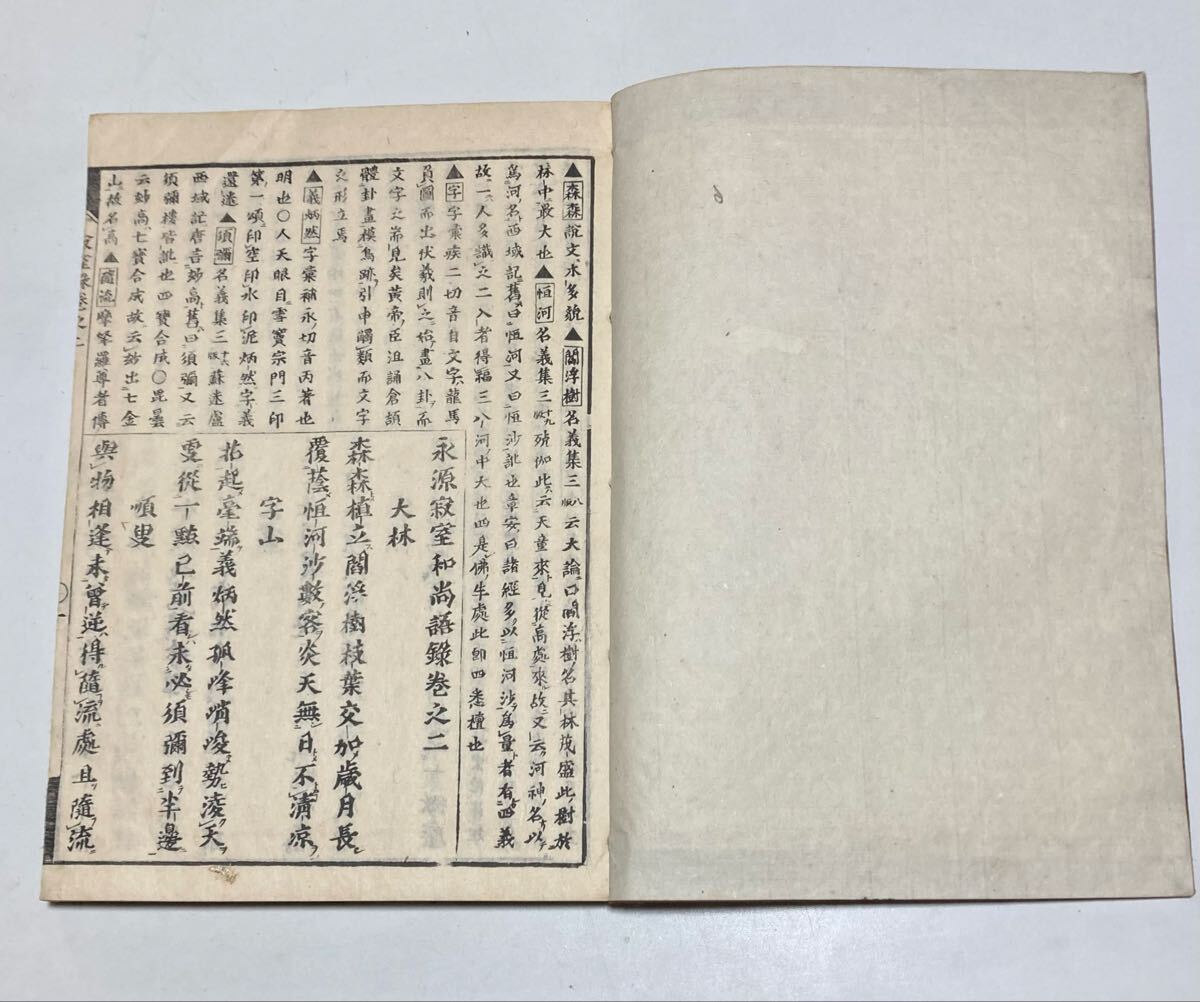 ▲森森說文木多貌▲閻浮樹名義集三八版云大論曰閻浮樹名其林茂盛此樹於
林中最大也▲恒河名義集三十九版殑伽此云天堂來見從高處來故又云河神名以
爲河名西域記舊曰恒河又曰恒沙訛也章安曰諸經多以恒河沙爲量者有四義
故一人多識之二入者得福三八河中大也四是佛生處此即四悉檀也
▲字字彙疾二切音自文字龍馬
負圖而出伏羲則之始畫八卦而
文字之端見矣黃帝臣沮誦倉頡
體卦畫模鳥跡引申觸類而文字
之形立焉
▲義炳然字彙補永切音丙著也
明也〇人天眼目雪竇宗門三印
第一頌印空印水印泥炳然字義
還遠▲須彌名義集三十六版蘇迷盧
西域記唐言妙高舊曰須彌又云
須彌樓皆訛也四寶合成〇毘曇
云妙高七寶合成故云妙出七金
山故名高▲隨流摩拏羅尊者傳
永源寂室和尚語錄卷之二
大林
森森植立閻浮樹枝葉交加歲月長
覆蔭恒河沙數客炎天無日不淸凉
字山
拈起毫端義炳然孤峰峭峻勢凌天
要從一點已前看未必須彌到半邊
順叟
與物相逢未曾逆得隨流處且隨流
寂室錄卷之二
〇一
6